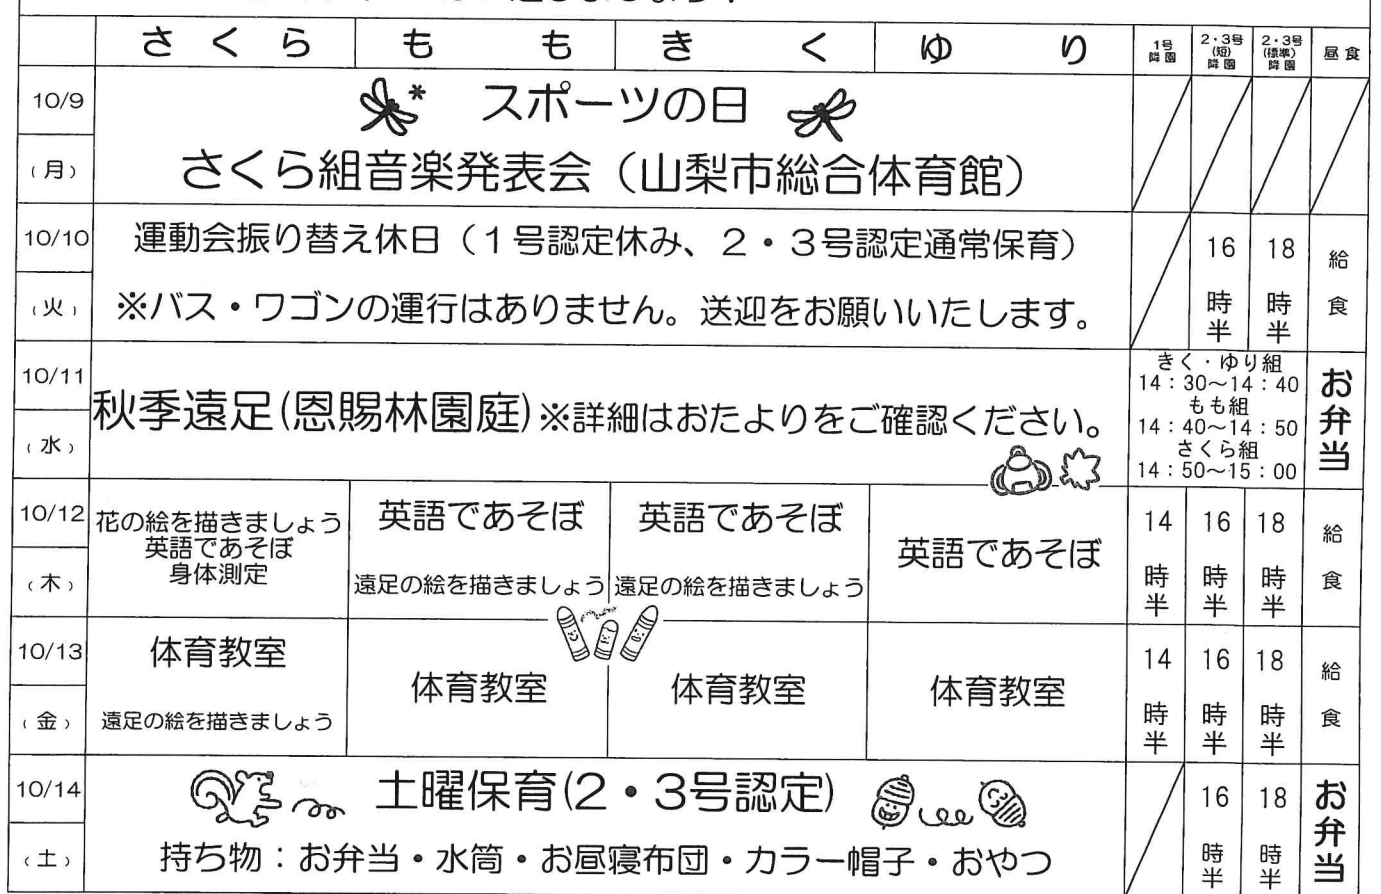 さくら もも きく ゆり 1号降園 2・3号(短)降園 2・3号(標準)降園 昼食
10/9
(月)
スポーツの日
さくら組音楽発表会(山梨市総合体育館)
10/10
(火)
運動会振り替え休日(1号認定休み、2・3号認定通常保育)
※バス・ワゴンの運行はありません。送迎をお願いいたします。
16時半
18時半
給食
10/11
(水)
秋季遠足(恩賜林園庭)※詳細はおたよりをご確認ください。
きく・ゆり組
14:30~14:40
もも組
14:40~14:50
さくら組
14:50~15:00
お弁当
10/12
(木)
花の絵を描きましょう
英語であそぼ
身体測定
英語であそぼ
遠足の絵を描きましょう
英語であそぼ
遠足の絵を描きましょう
英語であそぼ
14時半
16時半
18時半
給食
10/13
(金)
体育教室
遠足の絵を描きましょう
体育教室
体育教室
体育教室
14時半
16時半
18時半
給食
10/14
(土)
土曜保育(2・3号認定)
持ち物:お弁当・水筒・お昼寝布団・カラー帽子・おやつ
16時半
18時半
お弁当